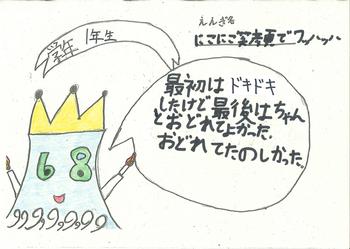 えんぎ名
にこにこ笑顔でワッハッハ
学年 1年生
最初はドキドキ
したけど最後はちゃん
とおどれてよかった。
おどれてたのしかった。
68